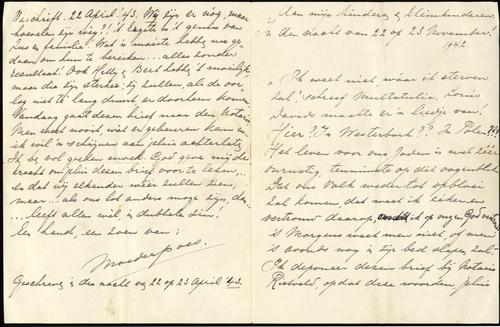 Naschrift. 22 April '43. Wij zijn er nog, maar
hoevelen zijn weg?! 't Laatste is 't gemis van
Zus en familie. Wat 'n moeite hebben we ge-
daan om hun te bereiken ... alles zonder
resultaat! Ook Kelly en Bert hebben 't moeilijk,
maar die zijn sterker; zij zullen, als de oor-
log niet te lang duurt er doorheen komen.
Vandaag gaat dezen brief naar den Notaris.
Men weet nooit wat er gebeuren kan en
ik wil 'n schrijven aan jullie achterlaten.
Ik ben vol goeden moed. God geve mij de
kracht om jullie dezen brief voor te lezen,
en dat wij elkander weer zullen zien,
maar... als ons lot anders moge zijn, dan
....leeft alles wel in dubbele zin!
Een hand, een zoen van:
Moederpoes.
Geschreven in den nacht van 22 op 23 April '43.
Aan mijn kinderen en kleinkinderen
in den nacht van 22 op 23 November!
1942
„Ik weet niet wáár ik sterven
zal", schreef Multatulie, Louis
Davids maakte er 'n liedje van!
Hier? In Westerbork?? In Polen???
Het leven voor ons Joden is wel zéér
onrustig, tenminste op dit oogenblik.
Dat ons Volk wederom opbloei
zal komen, dat weet ik zeker en
vertrouw daarop, omdat ik op onzen God vertrouw
's Morgens weet men niet, of men
's avonds nog in zijn bed slapen zal.
Ik deponeer dezen brief bij Notaris
Rietveld, opdat deze woorden jullie